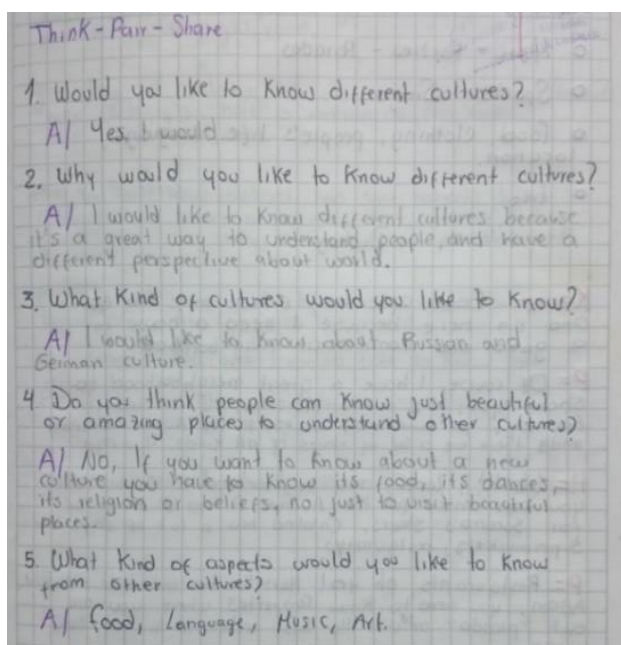 Think - Pair - Share
1. Would you like to know different cultures?
A/ Yes, I would
2. Why would you like to know different cultures?
A/ I would like to know different cultures because
it's a great way to understand people, and have a
different perspective about world.
3. What kind of cultures would you like to know?
A/ I would like to know about Russian and
German culture.
4. Do you think people can know just beautiful
or amazing places to understand other cultures?
A/ No, If you want to know about a new
culture you have to know its food, its dances,
its religion or beliefs, no just to visit beautiful
places.
5. What kind of aspects would you like to know
from other cultures?
A/ food, Language, Music, Art.